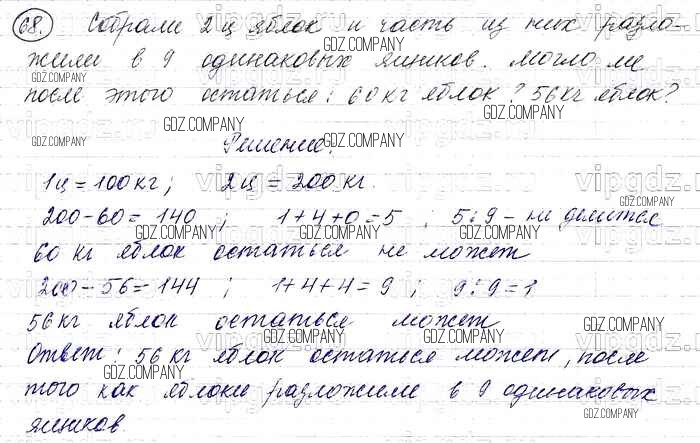 68. Собрали 2 ц яблок и часть из них разло-
жили в 9 одинаковых ящиков. могло ли
после этого остаться: 60 кг яблок? 56 кг яблок?
Решение.
1ц = 100 кг; 2ц = 200 кг.
200-60=140 ; 1+4+0=5 ; 5:9 - не делится
60 кг яблок остаться не может
200-56=144 ; 1+4+4=9 ; 9:9=1
56 кг яблок остаться может
Ответ: 56 кг яблок остаться может, после
того как яблоки разложили в 9 одинаковых
ящиков.
GDZ.COMPANY
vipgdz.ru